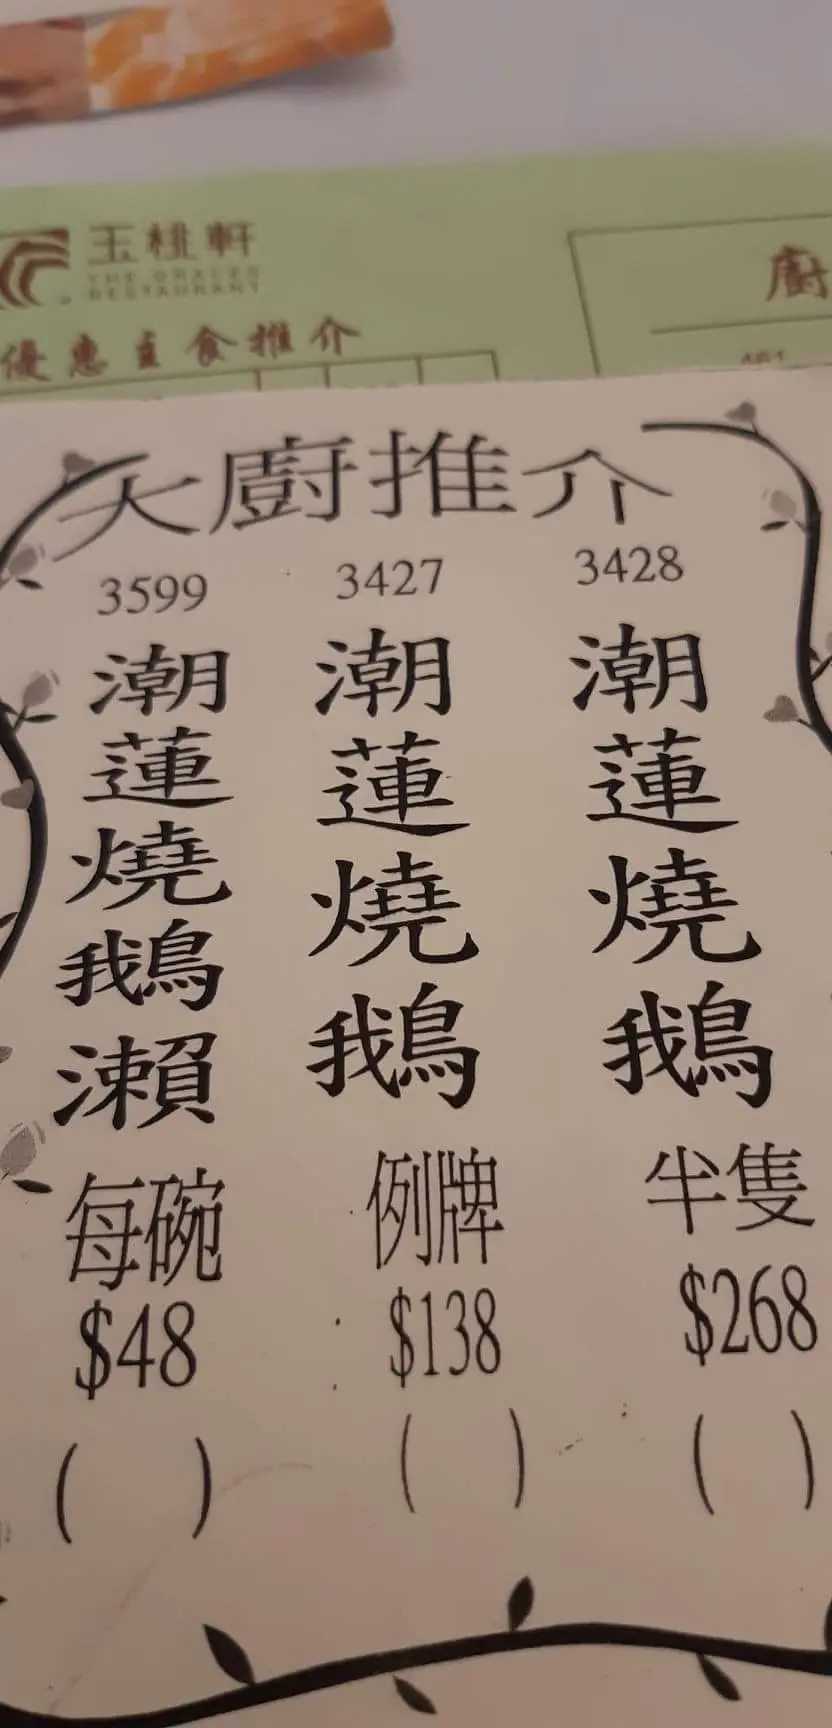 玉桃軒
THE GRACES
RESTAURANT
優惠主食推介
廚
461
大廚推介
3599
潮蓮燒鵝瀨
每碗
$48
( )
3427
潮蓮燒鵝
例牌
$138
( )
3428
潮蓮燒鵝
半隻
$268
( )